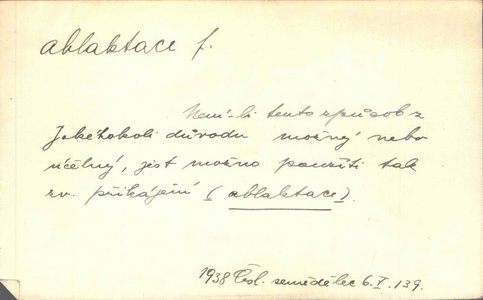 ablaktace f.
Není-li tento způsob z
jakéhokoli důvodu možný nebo
účelný, jest možno použíti tak
zv. přikájení (ablaktace).
1938 Čsl. zemědělec 6. I. 139.